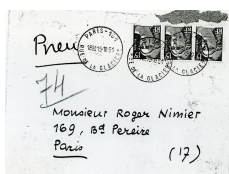 PARIS-102
18H30 19-10-51
R. DE LA GLACIERE
Pneu
74
Monsieur Roger Nimier
169, Bd Pereire
Paris
(17)